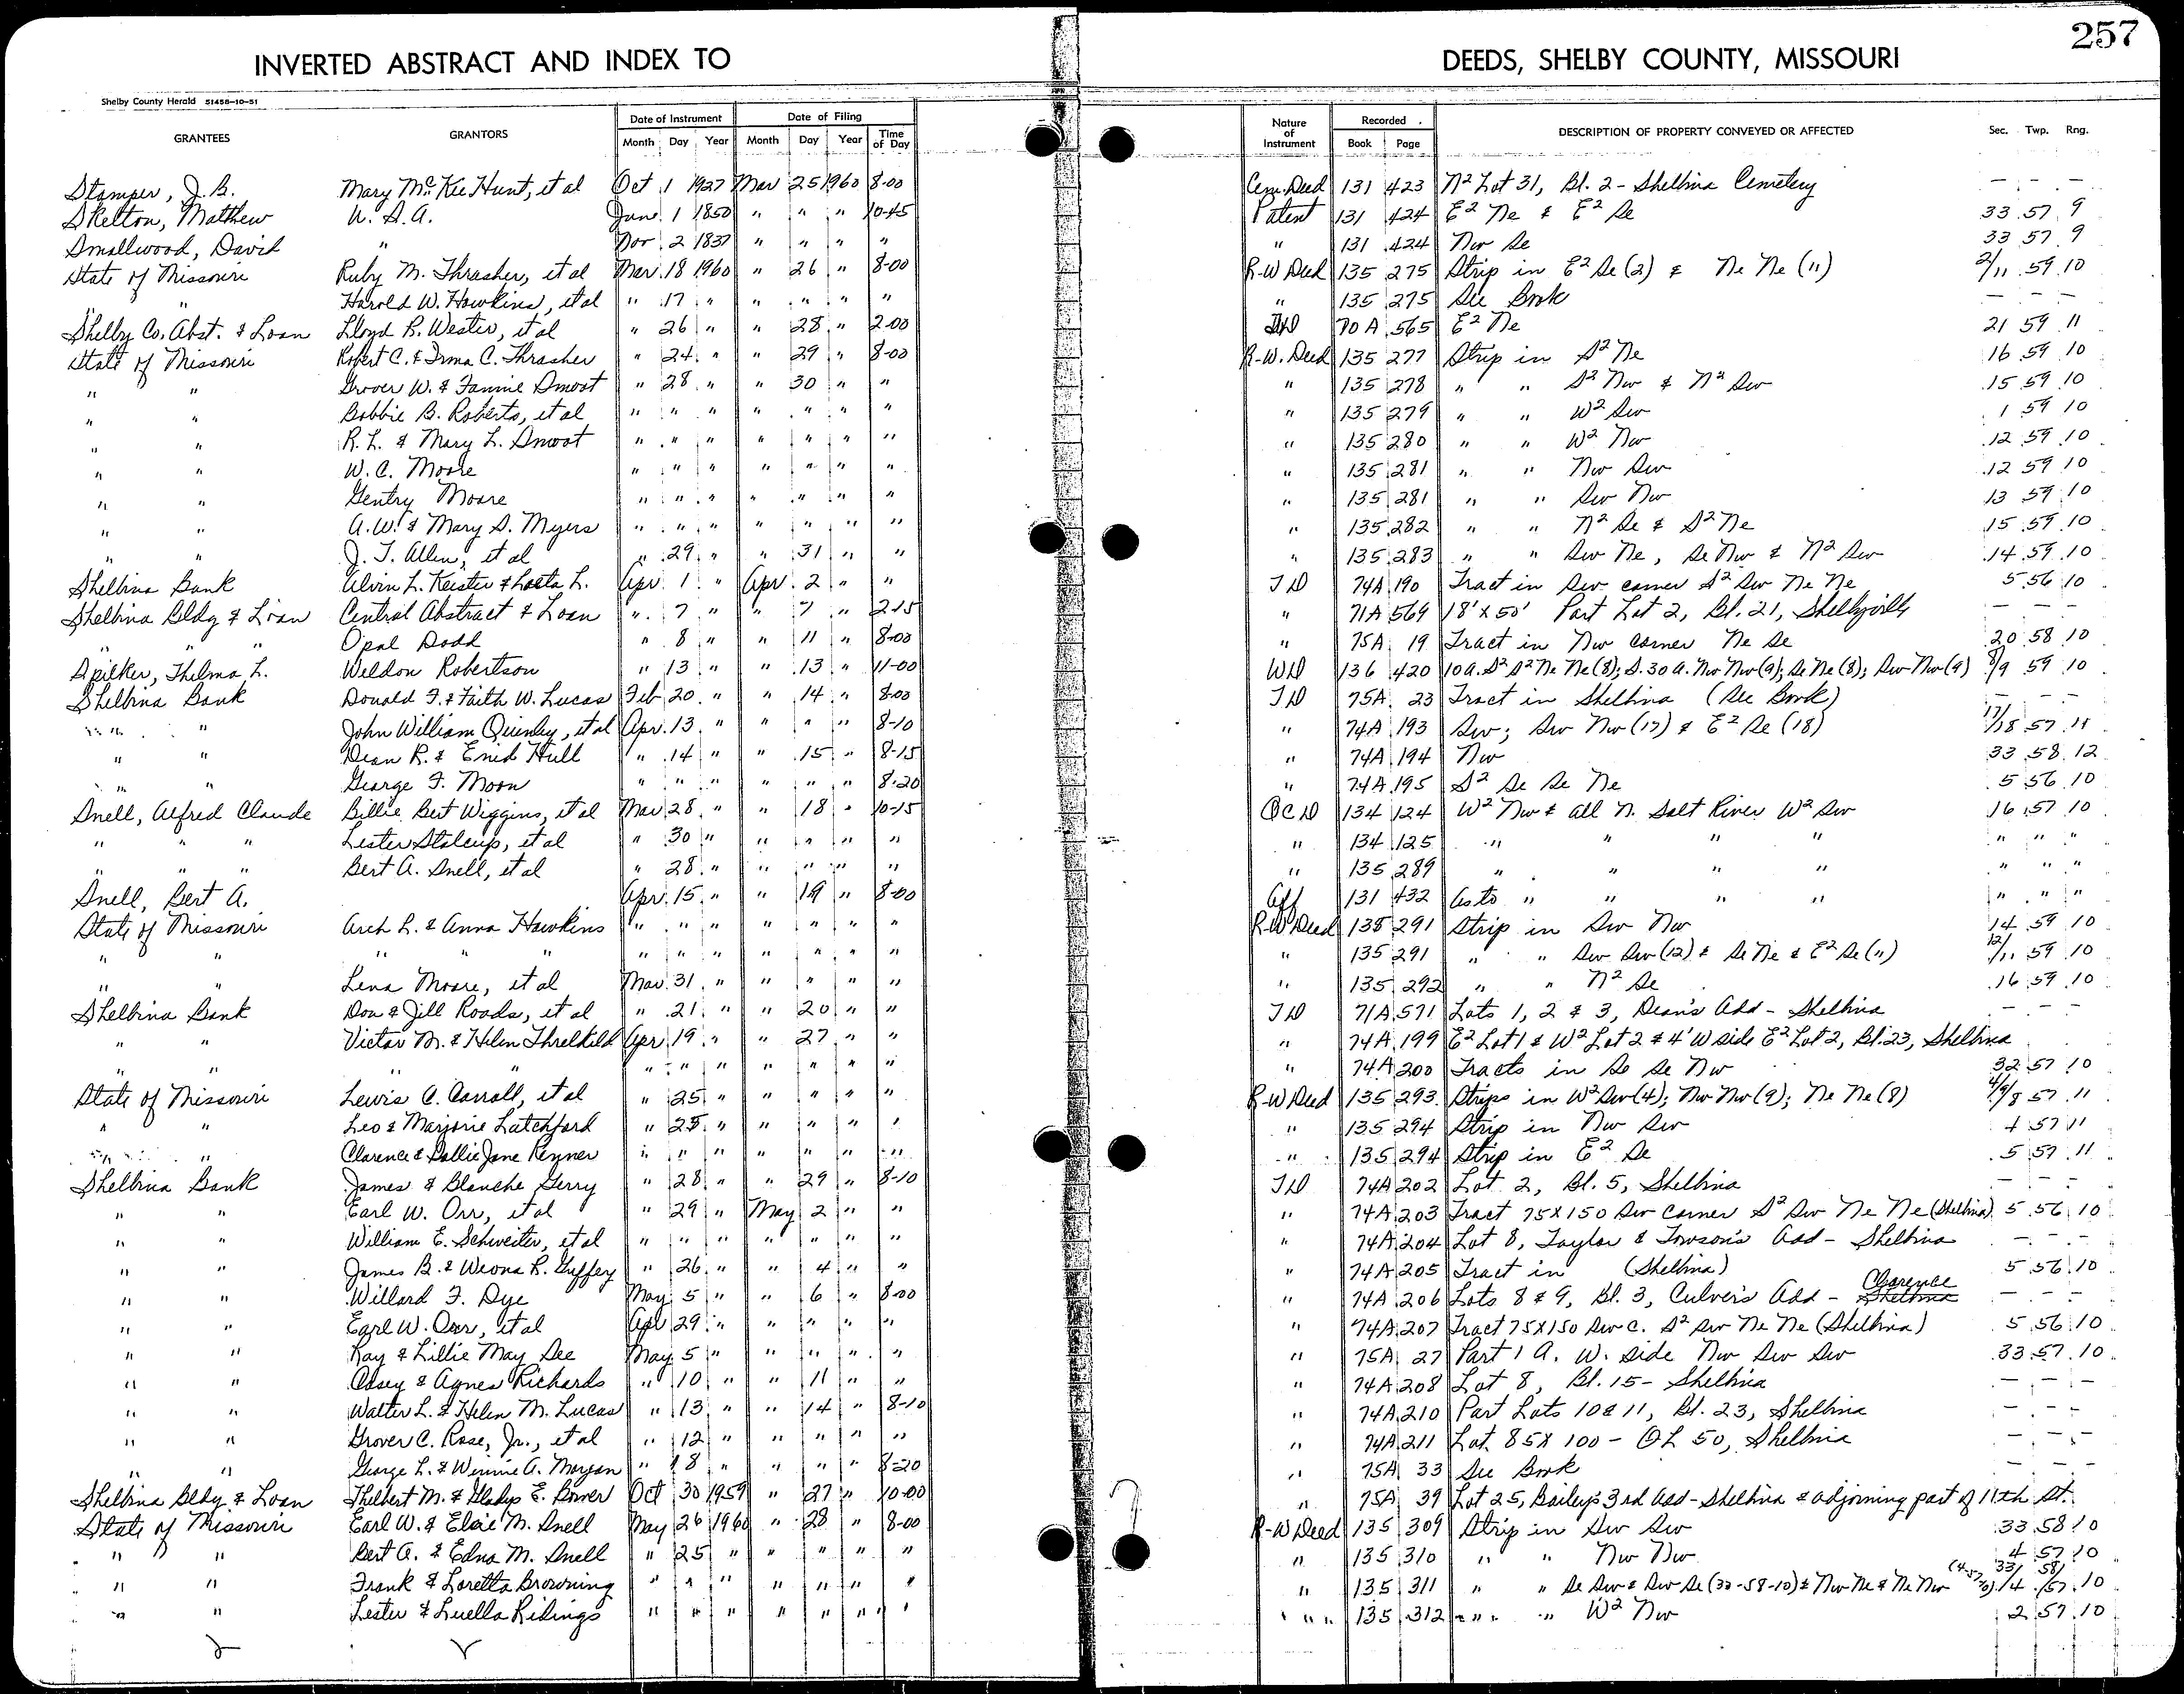 257
INVERTED ABSTRACT AND INDEX TO DEEDS, SHELBY COUNTY, MISSOURI
Shelby County Herald 51458-10-51
GRANTEES GRANTORS Date of Instrument Date of Filing Nature of Instrument Recorded DESCRIPTION OF PROPERTY CONVEYED OR AFFECTED Sec. Twp. Rng.
Month Day Year Month Day Year Time of Day Book Page
Stamper, J.B. Mary McKee Hunt, et al Oct 1 1927 Mar 25 1960 8-00 Cem. Deed 131 423 N2 Lot 31, Bl. 2 - Shelbina Cemetery — — —
Skelton, Mathew U. S. A. June 1 1850 " " " 10-45 Patent 131 424 E2 Ne & E2 Se 33 57 9
Smallwood, David " Nov 2 1837 " " " " " 131 424 Nw Se 33 57 9
State of Missouri Ruby M. Thrasher, et al Mar 18 1960 " 26 " 8-00 R-W Deed 135 275 Strip in E2 Se (2) & Ne Ne (11) 2/11 59 10
" Harold W. Hawkins, et al " 17 " " " " " " 135 275 See Book — — —
Shelby Co. Abst. & Loan Lloyd R. Wester, et al " 26 " " 28 " 2-00 70A 565 E2 Ne 21 59 11
State of Missouri Robert C. & Irma C. Thrasher " 24 " " 29 " 8-00 R-W. Deed 135 277 Strip in S2 Ne 16 59 10
" " Grover W. & Fannie Smoot " 28 " " 30 " " " 135 278 " " S2 Nw & N2 Sw 15 59 10
" " Bobbie B. Roberts, et al " " " " " " " " 135 279 " " W2 Sw 1 59 10
" " R. L. & Mary L. Smoot " " " " " " " " 135 280 " " W2 Nw 12 59 10
" " W. C. Moore " " " " " " " " 135 281 " " Nw Sw 12 59 10
" " Gentry Moore " " " " " " " " 135 281 " " Sw Nw 13 59 10
" " A. W. & Mary S. Myers " " " " " " " " 135 282 " " N2 Se & S2 Ne 15 59 10
" " J. T. Allen, et al " 29 " " 31 " " " 135 283 " " Sw Ne, Se Nw & N2 Sw 14 59 10
Shelbina Bank Alvin L. Keister & Loeta L. Apr 1 " Apr 2 " " TD 74A 190 Tract in Sw corner S2 Sw Ne Ne 5 56 10
Shelbina Bldg & Loan Central Abstract & Loan " 7 " " 7 " 2-15 " 71A 569 18' X 50' Part Lot 2, Bl. 21, Shelbyville — — —
" " " Opal Dodd " 8 " " 11 " 8-00 " 75A 19 Tract in Nw corner Ne Se 20 58 10
Spilker, Thelma L. Weldon Robertson " 13 " " 13 " 11-00 WD 136 420 10 a. S2 S2 Ne Ne (8); S. 30 a. Nw Nw (9); Se Ne (8); Sw Nw (9) 8/9 59 10
Shelbina Bank Donald F. & Faith W. Lucas Feb 20 " " 14 " 8-00 TD 75A 23 Tract in Shelbina (See Book) — — —
" " John William Quinley, et al Apr. 13 " " " " 8-10 " 74A 193 Sw; Sw Nw (17) & E2 Se (18) 17/18 57 11
" " Dean R. & Enid Hull " 14 " " 15 " 8-15 " 74A 194 Nw 33 58 12
" " George F. Moon " " " " " " 8-20 " 74A 195 S2 Se Se Ne 5 56 10
Snell, Alfred Claude Billie Bert Wiggins, et al Mar 28 " " 18 " 10-15 QCD 134 124 W2 Nw & all N. Salt River W2 Sw 16 57 10
" " " Lester Stalcup, et al " 30 " " " " " " 134 125 " " " " " " "
" " " Bert A. Snell, et al " 28 " " " " " " 135 289 " " " " " " "
Snell, Bert A. Apr. 15 " " 19 " 8-00 Aff 131 432 As to " " " " " " "
State of Missouri Arch L. & Anna Hawkins " " " " " " " R-W Deed 135 291 Strip in Sw Nw 14 59 10
" " " " " " " " " " " " " 135 291 " " Sw Sw (12) & Se Ne & E2 Se (11) 12/11 59 10
" " Lena Moore, et al Mar. 31 " " " " " " 135 292 " " N2 Se 16 59 10
Shelbina Bank Don & Jill Roads, et al " 21 " " 20 " " TD 71A 571 Lots 1, 2 & 3, Dean's Add - Shelbina — — —
" " Victor M. & Helen Threlkeld Apr 19 " " 27 " " " 74A 199 E2 Lot 1 & W2 Lot 2 & 4' W side E2 Lot 2, Bl. 23, Shelbina
" " " " " " " " " " " " 74A 200 Tracts in Se Se Nw 32 57 10
State of Missouri Lewis C. Carroll, et al " 25 " " " " " R-W Deed 135 293 Strips in W2 Sw (4); Nw Nw (9); Ne Ne (8) 4/9/8 57 11
" " Leo & Marjorie Latchford " 25 " " " " " " 135 294 Strip in Nw Sw 4 57 11
" " Clarence & Sallie Jane Kenner " " " " " " " " 135 294 Strip in E2 Se 5 57 11
Shelbina Bank James & Blanche Gerry " 28 " " 29 " 8-10 TD 74A 202 Lot 2, Bl. 5, Shelbina — — —
" " Earl W. Orr, et al " 29 " May 2 " " " 74A 203 Tract 75X150 Sw Corner S2 Sw Ne Ne (Shelbina) 5 56 10
" " William E. Schweiter, et al " " " " " " " " 74A 204 Lot 8, Taylor & Towson's Add - Shelbina — — —
" " James B. & Weona R. Guffey " 26 " " 4 " " " 74A 205 Tract in (Shelbina) 5 56 10
" " Willard F. Dye May 5 " " 6 " 8-00 " 74A 206 Lots 8 & 9, Bl. 3, Culver's Add - Shelbina Clarence — — —
" " Earl W. Orr, et al Apl 29 " " " " " " 74A 207 Tract 75X150 Sw c. S2 Sw Ne Ne (Shelbina) 5 56 10
" " Ray & Lillie May See May 5 " " " " " " 75A 27 Part 1 A. W. side Nw Sw Sw 33 57 10
" " Casey & Agnes Richards " 10 " " 11 " " " 74A 208 Lot 8, Bl. 15 - Shelbina — — —
" " Walter L. & Helen M. Lucas " 13 " " 14 " 8-10 " 74A 210 Part Lots 10 & 11, Bl. 23, Shelbina — — —
" " Grover C. Rose, Jr., et al " 12 " " " " " " 74A 211 Lot 85X100 - OL 50, Shelbina — — —
" " George L. & Winnie A. Morgan " 18 " " " " 8-20 " 75A 33 See Book — — —
Shelbina Bldg & Loan Thelbert M. & Gladys E. Bower Oct 30 1959 " 27 " 10-00 " 75A 39 Lot 25, Bailey's 3rd Add - Shelbina & adjoining part of 11th St.
State of Missouri Earl W. & Elsie M. Snell May 26 1960 " 28 " 8-00 R-W Deed 135 309 Strip in Sw Sw 33 58 10
" " Bert A. & Edna M. Snell " 25 " " " " " " 135 310 " " Nw Nw 4 57 10
" " Frank & Loretta Browning " " " " " " " " 135 311 " " Se Sw & Sw Se (33-58-10) & Nw Ne & Ne Nw (4-57-10) 33/4 58/57 10
" " Lester & Luella Ridings " " " " " " " " 135 312 " " W2 Nw 2 57 10